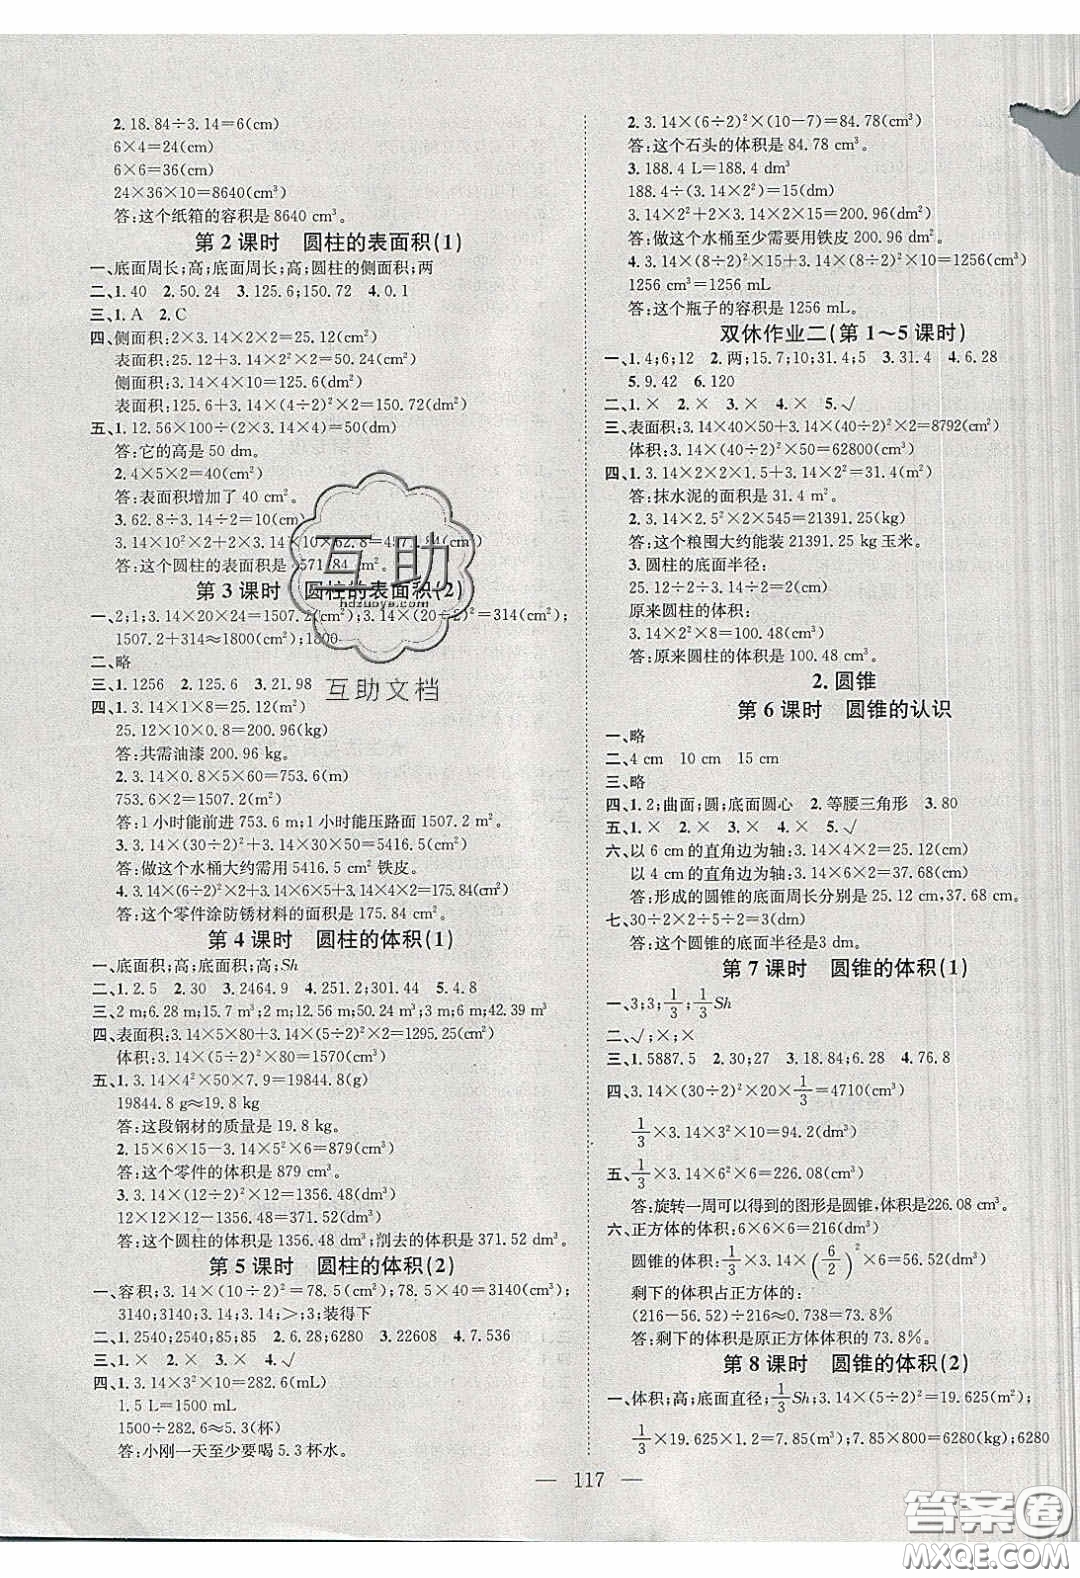 2. 18.84÷3.14=6(cm)
6×4=24(cm)
6×6=36(cm)
24×36×10=8640(cm³)
答:这个纸箱的容积是 8640 cm³。
第 2 课时 圆柱的表面积(1)
一、底面周长;高;底面周长;高;圆柱的侧面积;两
二、1. 40 2. 50.24 3. 125.6;150.72 4. 0.1
三、1. A 2. C
四、侧面积:2×3.14×2×2=25.12(cm²)
表面积:25.12+3.14×2²×2=50.24(cm²)
侧面积:3.14×4×10=125.6(dm²)
表面积:125.6+3.14×(4÷2)²×2=150.72(dm²)
五、1. 12.56×100÷(2×3.14×4)=50(dm)
答:它的高是 50 dm。
2. 4×5×2=40(cm²)
答:表面积增加了 40 cm²。
3. 62.8÷3.14÷2=10(cm)
3.14×10²×2+3.14×2×10×62.8=457
答:这个圆柱的表面积是 4571.84 cm²。
第 3 课时 圆柱的表面积(2)
一、2;1;3.14×20×24=1507.2(cm²);3.14×(20÷2)²=314(cm²);
1507.2+314≈1800(cm²);1800
二、略
三、1. 1256 2. 125.6 3. 21.98
四、1. 3.14×1×8=25.12(m²)
25.12×10×0.8=200.96(kg)
答:共需油漆 200.96 kg。
2. 3.14×0.8×5×60=753.6(m)
753.6×2=1507.2(m²)
答:1 小时能前进 753.6 m;1 小时能压路面 1507.2 m²。
3. 3.14×(30÷2)²+3.14×30×50=5416.5(cm²)
答:做这个水桶大约需用 5416.5 cm² 铁皮。
4. 3.14×(6÷2)²+3.14×6×5+3.14×4×5=175.84(cm²)
答:这个零件涂防锈材料的面积是 175.84 cm²。
第 4 课时 圆柱的体积(1)
一、底面积;高;底面积;高;Sh
二、1. 2.5 2. 30 3. 2464.9 4. 251.2;301.44 5. 4.8
三、2 m;6.28 m;15.7 m³;2 m;12.56 m;50.24 m³;3 m;6 m;42.39 m³
四、表面积:3.14×5×80+3.14×(5÷2)²×2=1295.25(cm²)
体积:3.14×(5÷2)²×80=1570(cm³)
五、1. 3.14×4²×50×7.9=19844.8(g)
19844.8 g≈19.8 kg
答:这段钢材的质量是 19.8 kg。
2. 15×6×15-3.14×5²×6=879(cm³)
答:这个零件的体积是 879 cm³。
3. 3.14×(12÷2)²×12=1356.48(dm³)
12×12×12-1356.48=371.52(dm³)
答:这个圆柱的体积是 1356.48 dm³;削去的体积是 371.52 dm³。
第 5 课时 圆柱的体积(2)
一、容积;3.14×(10÷2)²=78.5(cm²);78.5×40=3140(cm³);
3140;3140;3.14;3.14;>;3;装得下
二、1. 2540;2540;85;85 2. 6.28;6280 3. 22608 4. 7.536
三、1. × 2. × 3. × 4. √
四、1. 3.14×3²×10=282.6(mL)
1.5 L=1500 mL
1500÷282.6≈5.3(杯)
答:小刚一天至少要喝 5.3 杯水。
2. 3.14×(6÷2)²×(10-7)=84.78(cm³)
答:这个石头的体积是 84.78 cm³。
3. 188.4 L=188.4 dm³
188.4÷(3.14×2²)=15(dm)
3.14×2²+2×3.14×2×15=200.96(dm²)
答:做这个水桶至少需要用铁皮 200.96 dm²。
4. 3.14×(8÷2)²×20+3.14×(8÷2)²×5=1256(cm³)
1256 cm³=1256 mL
答:这个瓶子的容积是 1256 mL。
双休作业二(第 1～5 课时)
一、1. 4;6;12 2. 两;15.7;10;31.4;5 3. 31.4 4. 6.28
5. 9.42 6. 120
二、1. × 2. × 3. × 4. × 5. √
三、表面积:3.14×40×50+3.14×(40÷2)²×2=8792(cm²)
体积:3.14×(40÷2)²×50=62800(cm³)
四、1. 3.14×2×2×1.5+3.14×2²=31.4(m²)
答:抹水泥的面积是 31.4 m²。
2. 3.14×2.5²×2×545=21391.25(kg)
答:这个粮囤大约能装 21391.25 kg 玉米。
3. 圆柱的底面半径:
25.12÷2÷3.14÷2=2(cm)
原来圆柱的体积:
3.14×2²×8=100.48(cm³)
答:原来圆柱的体积是 100.48 cm³。
2. 圆锥
第 6 课时 圆锥的认识
一、略
二、4 cm 10 cm 15 cm
三、略
四、1. 2;曲面;圆;底面圆心 2. 等腰三角形 3. 80
五、1. × 2. × 3. × 4. × 5. √
六、以 6 cm 的直角边为轴:3.14×4×2=25.12(cm)
以 4 cm 的直角边为轴:3.14×6×2=37.68(cm)
答:形成的圆锥的底面周长分别是 25.12 cm、37.68 cm。
七、30÷2×2÷5÷2=3(dm)
答:这个圆锥的底面半径是3 dm。
第 7 课时 圆锥的体积(1)
一、3;3;1/3;1/3 Sh
二、√;×;×
三、1. 5887.5 2. 30;27 3. 18.84;6.28 4. 76.8
四、3.14×(30÷2)²×20×1/3=4710(cm³)
1/3×3.14×3²×10=94.2(dm³)
五、1/3×3.14×6²×6=226.08(cm³)
答:旋转一周可以得到的图形是圆锥,体积是226.08 cm³。
六、正方体的体积:6×6×6=216(dm³)
圆锥的体积:1/3×3.14×(6/2)²×6=56.52(dm³)
剩下的体积占正方体的:
(216-56.52)÷216≈0.738=73.8%
答:剩下的体积是原正方体体积的 73.8%。
第 8 课时 圆锥的体积(2)
一、体积;高;底面直径;1/3 Sh;3.14×(5÷2)²=19.625(m²);
1/3×19.625×1.2=7.85(m³);7.85×800=6280(kg);6280
117
互助
hdzuoye.com
互助文档
答案圈
MXQE.COM